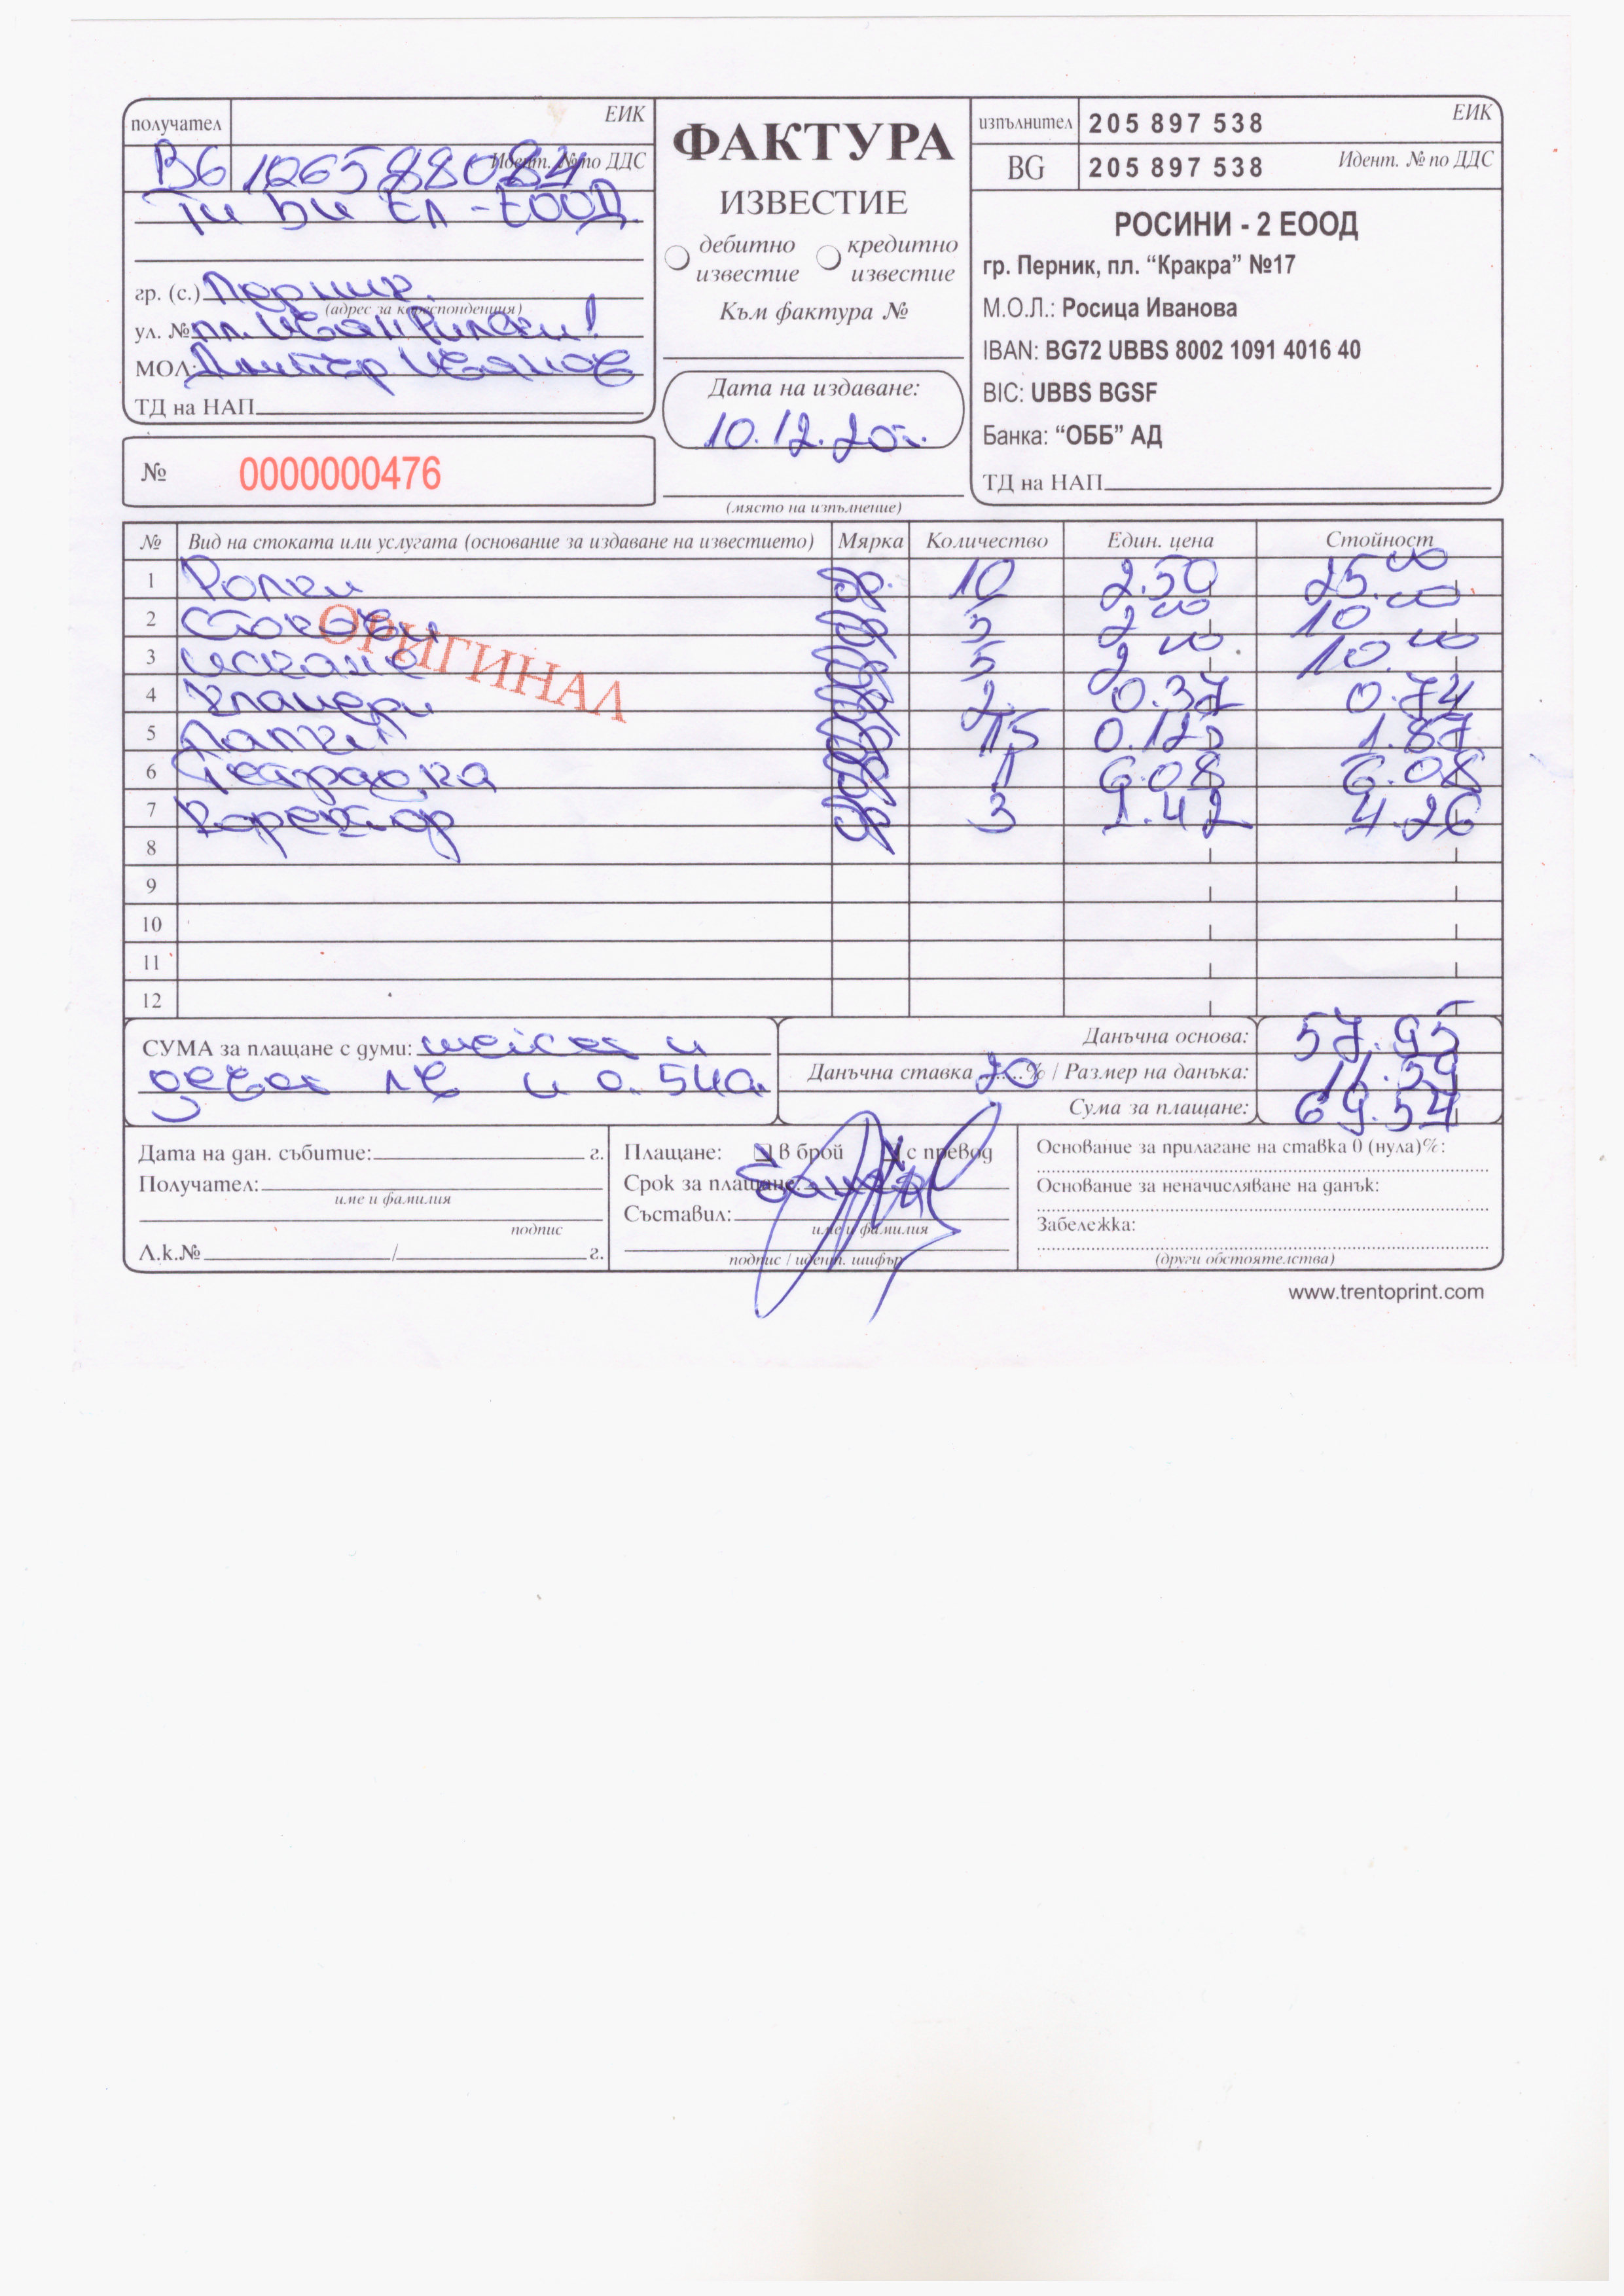 получател ЕИК
BG 106588084 Идент. № по ДДС
Ти Би Ел - ЕООД
гр. (с.) Перник
(адрес за кореспонденция)
ул. № пл. Иван Рилски 1
МОЛ: Димитър Иванов
ТД на НАП
№ 0000000476
ФАКТУРА
ИЗВЕСТИЕ
дебитно известие кредитно известие
Към фактура №
Дата на издаване:
10.12.20г.
(място на изпълнение)
изпълнител 205 897 538 ЕИК
BG 205 897 538 Идент. № по ДДС
РОСИНИ - 2 ЕООД
гр. Перник, пл. “Кракра” №17
М.О.Л.: Росица Иванова
IBAN: BG72 UBBS 8002 1091 4016 40
BIC: UBBS BGSF
Банка: “ОББ” АД
ТД на НАП
№ Вид на стоката или услугата (основание за издаване на известието) Мярка Количество Един. цена Стойност
1 Ролки бр. 10 2.50 25.00
2 Стокови бр 5 2.00 10.00
3 бр 5 2.00 10.00
4 бр 2 0.37 0.74
5 Папки бр 15 0.125 1.87
6 Тетрадка бр 1 6.08 6.08
7 Коректор бр 3 1.42 4.26
8
9
10
11
12
ОРИГИНАЛ
СУМА за плащане с думи: шейсет и
девет лв и 0.54
Данъчна основа: 57.95
Данъчна ставка 20 % / Размер на данъка: 11.59
Сума за плащане: 69.54
Дата на дан. събитие: г.
Получател:
име и фамилия
подпис
Л.к.№ / г.
Плащане: в брой с превод
Срок за плащане:
Съставил:
име и фамилия
подпис / идент. шифър
Основание за прилагане на ставка 0 (нула)%:
Основание за неначисляване на данък:
Забележка:
(други обстоятелства)
www.trentoprint.com